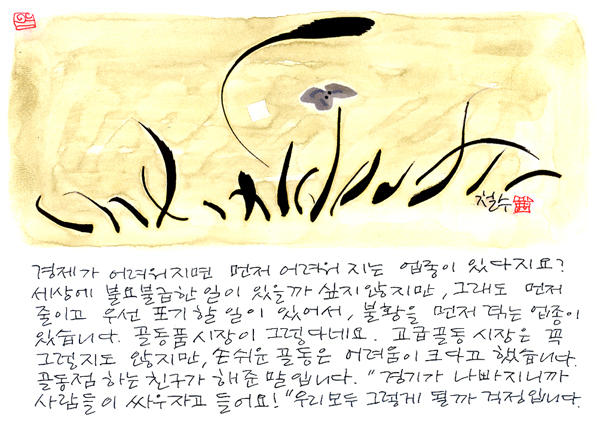 철수
경제가 어려워지면 먼저 어려워 지는 업종이 있다지요?
세상에 불요불급한 일이 있을까 싶지 않지만, 그래도 먼저
줄이고 우선 포기할 일이 있어서, 불황을 먼저 타는 업종이
있습니다. 골동품 시장이 그렇다네요. 고급골동 시장은 꼭
그렇지도 않지만, 손쉬운 골동은 어려움이 크다고 했습니다.
골동점 하는 친구가 해준 말입니다. "경기가 나빠지니까
사람들이 싸우자고 들어요!" 우리모두 그렇게 될까 걱정입니다.